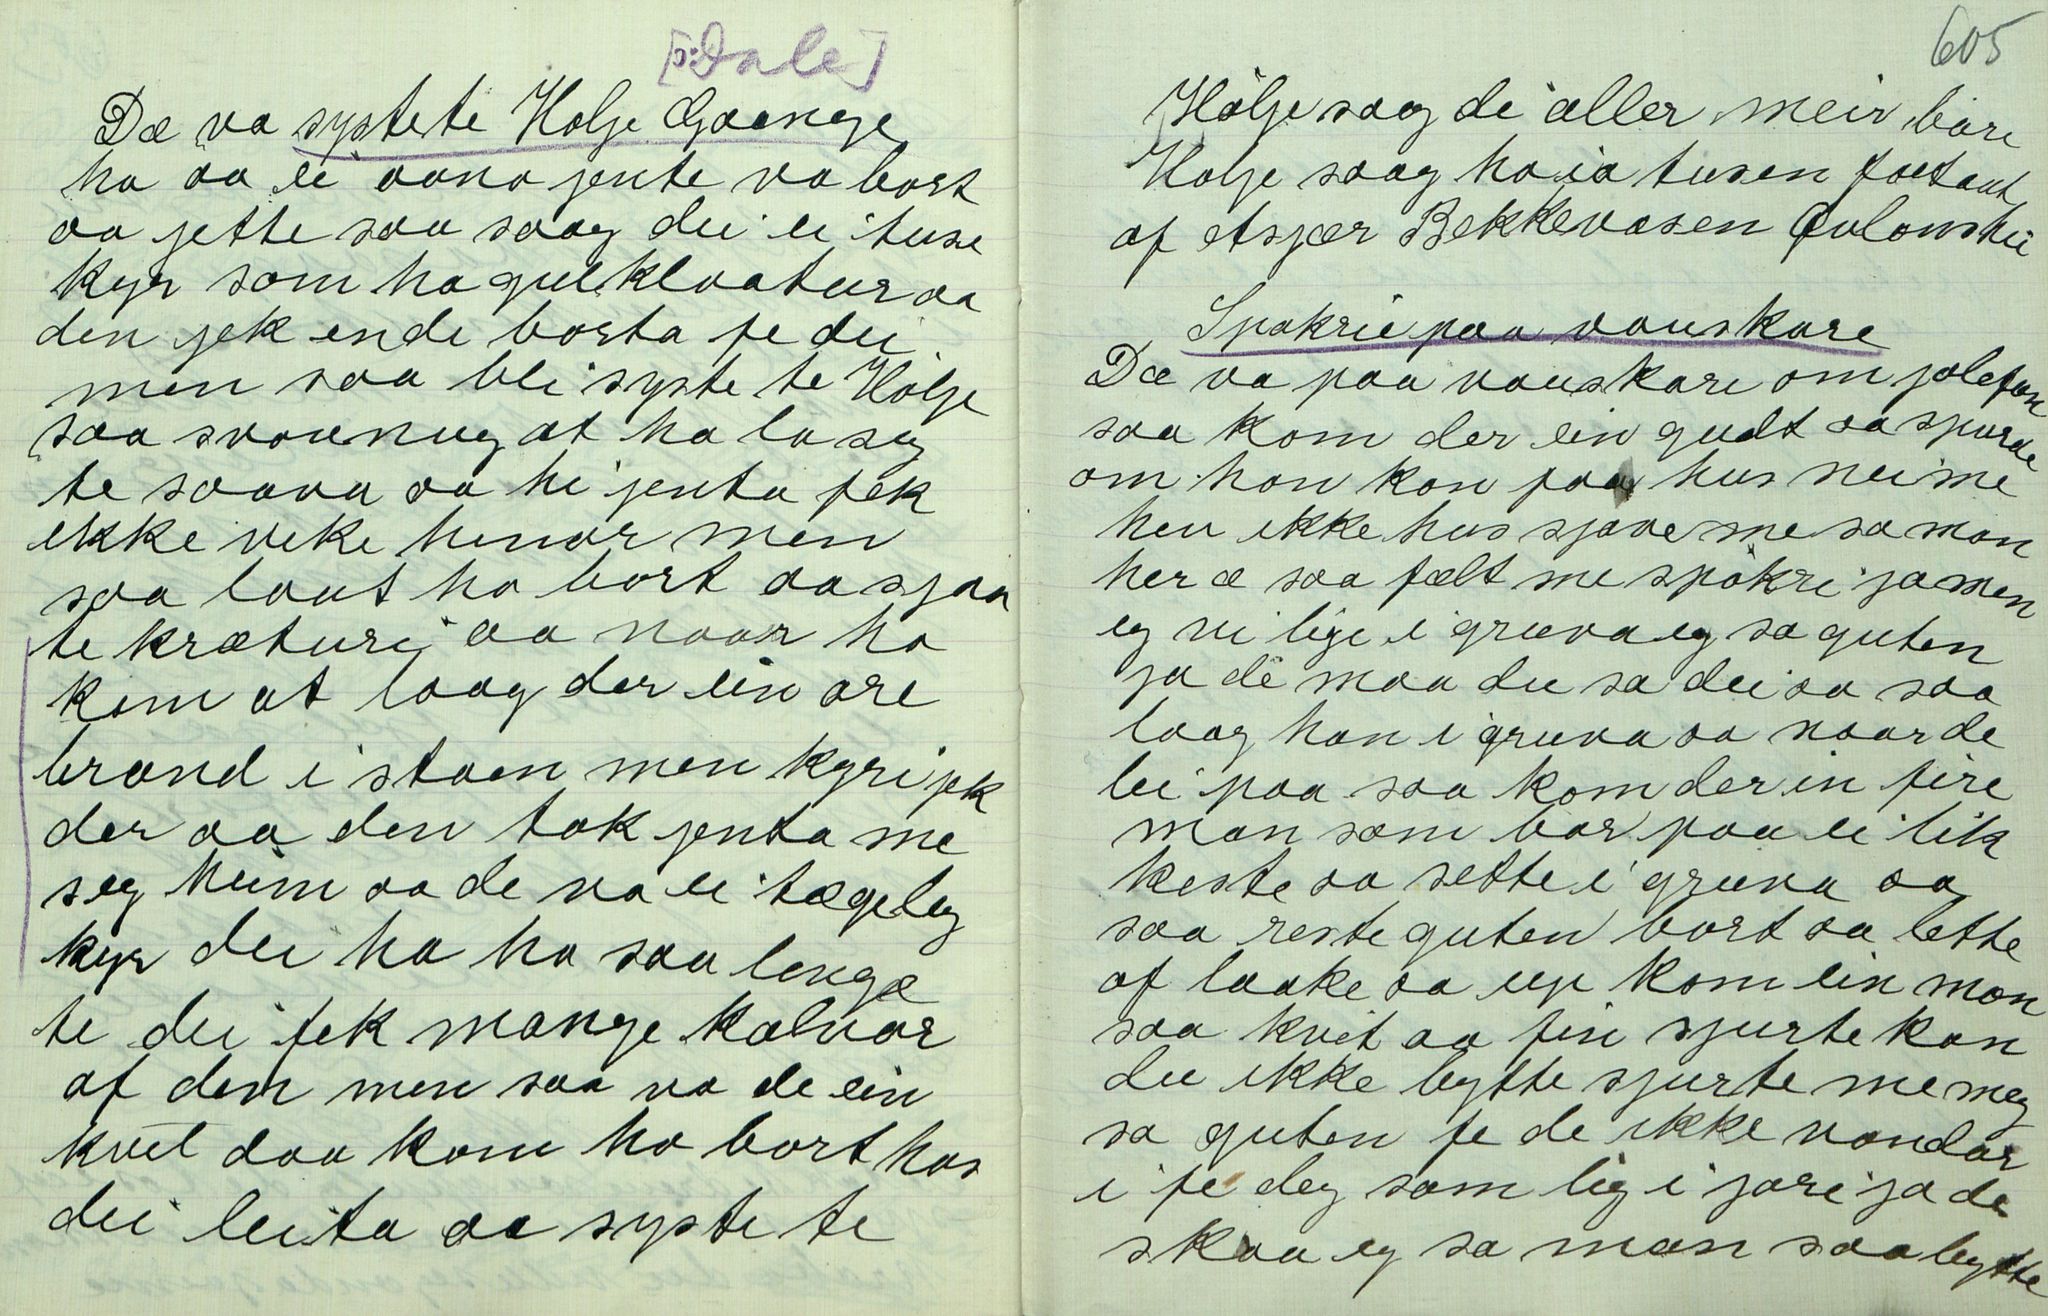 [ɔ: Dale]
Dæ va systete Holje Gaange
ho aa ei aana jente va bort
aa jette saa saag dei ei tuse
kyr som ha gul klaatur aa
den jek ende borta fe dei
men saa blei syste te Holje
saa svævnug at ho la seg
te saava aa hi jenta fek
ikke veke henar men
saa laut ho bort aa sjaa
te kræturi aa naar ho
kom at laag der ein are
brand i staen men kyri jek
der aa den tok jenta me
seg heim aa de va ei tægeleg
kyr dei ha ho saa lenge
te dei fek mange kalvar
af den men saa va de ein
kvel daa kom ho bort hos
dei leita aa syste te
605
Holje saag di aller meir bare
Holje saag ho ia tusen fortaut
af Asjær Bekkevasen Aulonskii
Spøkrie paa vauskare
Dæ va paa vauskare om jolefan
saa kom der ein gudt aa spurde
om han kon faa hus nei me
heu ikke hus sjøve me sa man
her æ saa fælt me spøkri ja men
eg vi lige i gruva eg sa guten
ja de maa du sa dei aa saa
laag han i gruva aa naar de
lei paa saa kom der in fire
man som bar paa ei lik
keste aa sette i gruva aa
saa reste guten bort aa lette
af laake aa up kom ein man
saa kvit aa fin sjurte kan
du ikke bytte sjurte me meg
sa guten fe de ikke vandar
i fe deg som lig i jori ja de
skaa eg sa man saa bytte